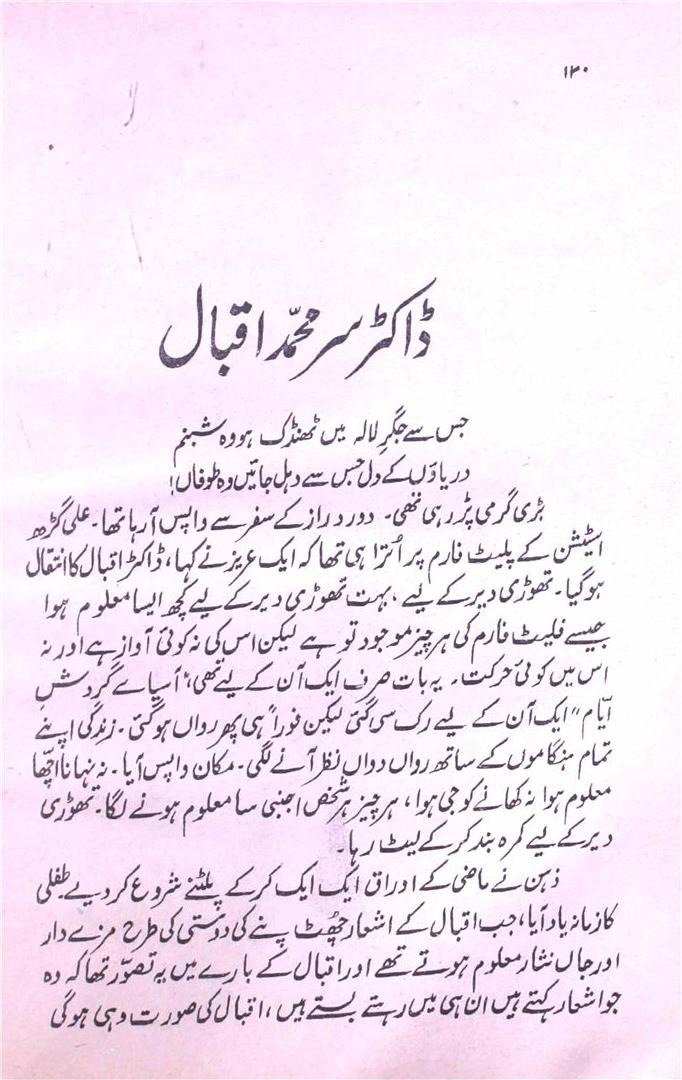 ۱۳۰
ڈاکٹر سر محمّد اقبال
جس سے جگرِ لالہ میں ٹھنڈک ہو وہ شبنم
دریاؤں کے دل جس سے دہل جائیں وہ طوفاں!
بڑی گرمی پڑ رہی تھی۔ دور دراز کے سفر سے واپس آ رہا تھا۔ علی گڑھ
اسٹیشن کے پلیٹ فارم پر اُترا ہی تھا کہ ایک عزیز نے کہا، ڈاکٹر اقبال کا انتقال
ہو گیا۔ تھوڑی دیر کے لیے، بہت تھوڑی دیر کے لیے کچھ ایسا معلوم ہوا
جیسے فلیٹ فارم کی ہر چیز موجود تو ہے لیکن اس کی نہ کوئی آواز ہے اور نہ
اس میں کوئی حرکت۔ یہ بات صرف ایک آن کے لیے تھی، "آسیاے گردشِ
ایّام" ایک آن کے لیے رک سی گئی لیکن فوراً ہی پھر رواں ہو گئی۔ زندگی اپنے
تمام ہنگاموں کے ساتھ رواں دواں نظر آنے لگی۔ مکان واپس آیا۔ نہ نہانا اچھّا
معلوم ہوا نہ کھانے کو جی ہوا، ہر چیز ہر شخص اجنبی سا معلوم ہونے لگا۔ تھوڑی
دیر کے لیے کمرہ بند کر کے لیٹ رہا۔
ذہن نے ماضی کے اوراق ایک ایک کر کے پلٹنے شروع کر دیے۔ طفلی
کا زمانہ یاد آیا، جب اقبال کے اشعار چھُٹ پنے کی دوستی کی طرح مزے دار
اور جاں نثار معلوم ہوتے تھے اور اقبال کے بارے میں یہ تصوّر تھا کہ وہ
جو اشعار کہتے ہیں ان ہی میں رہتے بستے ہیں، اقبال کی صورت وہی ہوگی